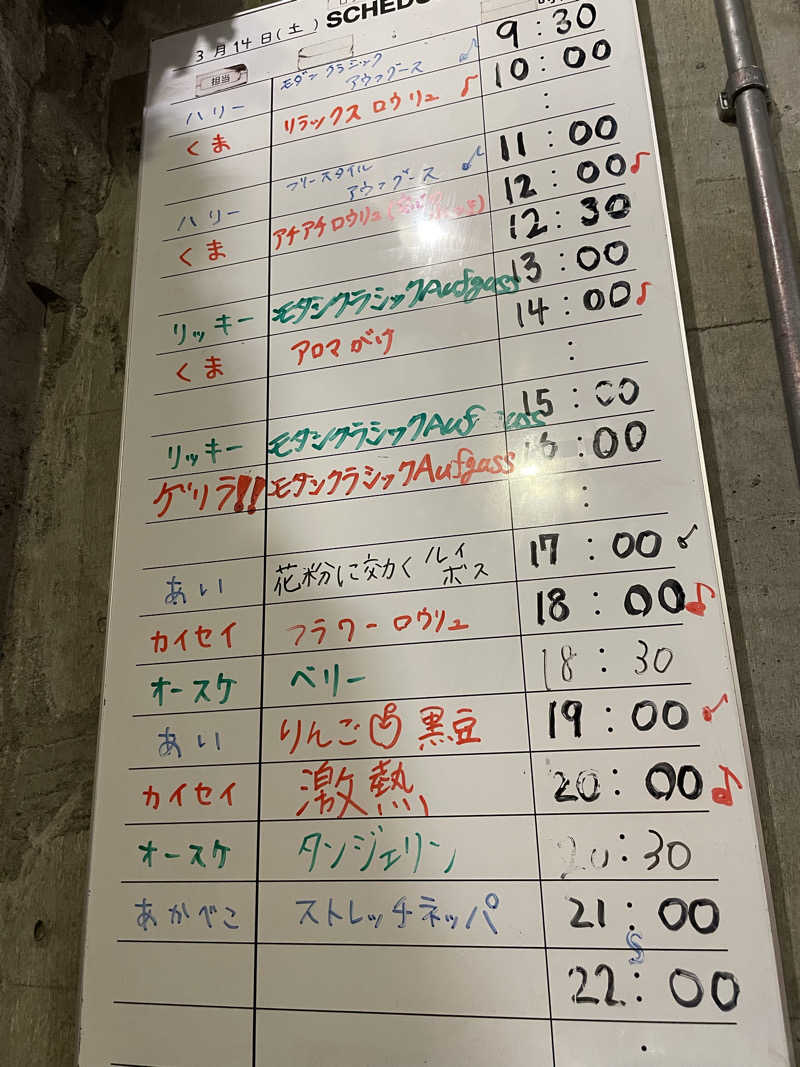 3月14日(土) SCHEDU
担当
ハリー モダンクラシック アウフグース ♪ 9:30
くま リラックスロウリュ ♪ 10:00
:
ハリー フリースタイル アウフグース ♪ 11:00
くま アチアチロウリュ( 12:00 ♪
12:30
リッキー モダンクラシックAufgass 13:00
くま アロマがけ 14:00 ♪
:
リッキー モダンクラシックAuf ass 15:00
ゲリラ!! モダンクラシックAufgass 16:00
:
あい 花粉に効く ルイボス 17:00 ♪
カイセイ フラワーロウリュ 18:00 ♪
オースケ ベリー 18:30
あい りんご 黒豆 19:00 ♪
カイセイ 激熱 20:00 ♪
オースケ タンジェリン 20:30
あかべこ ストレッチネッパ 21:00
22:00